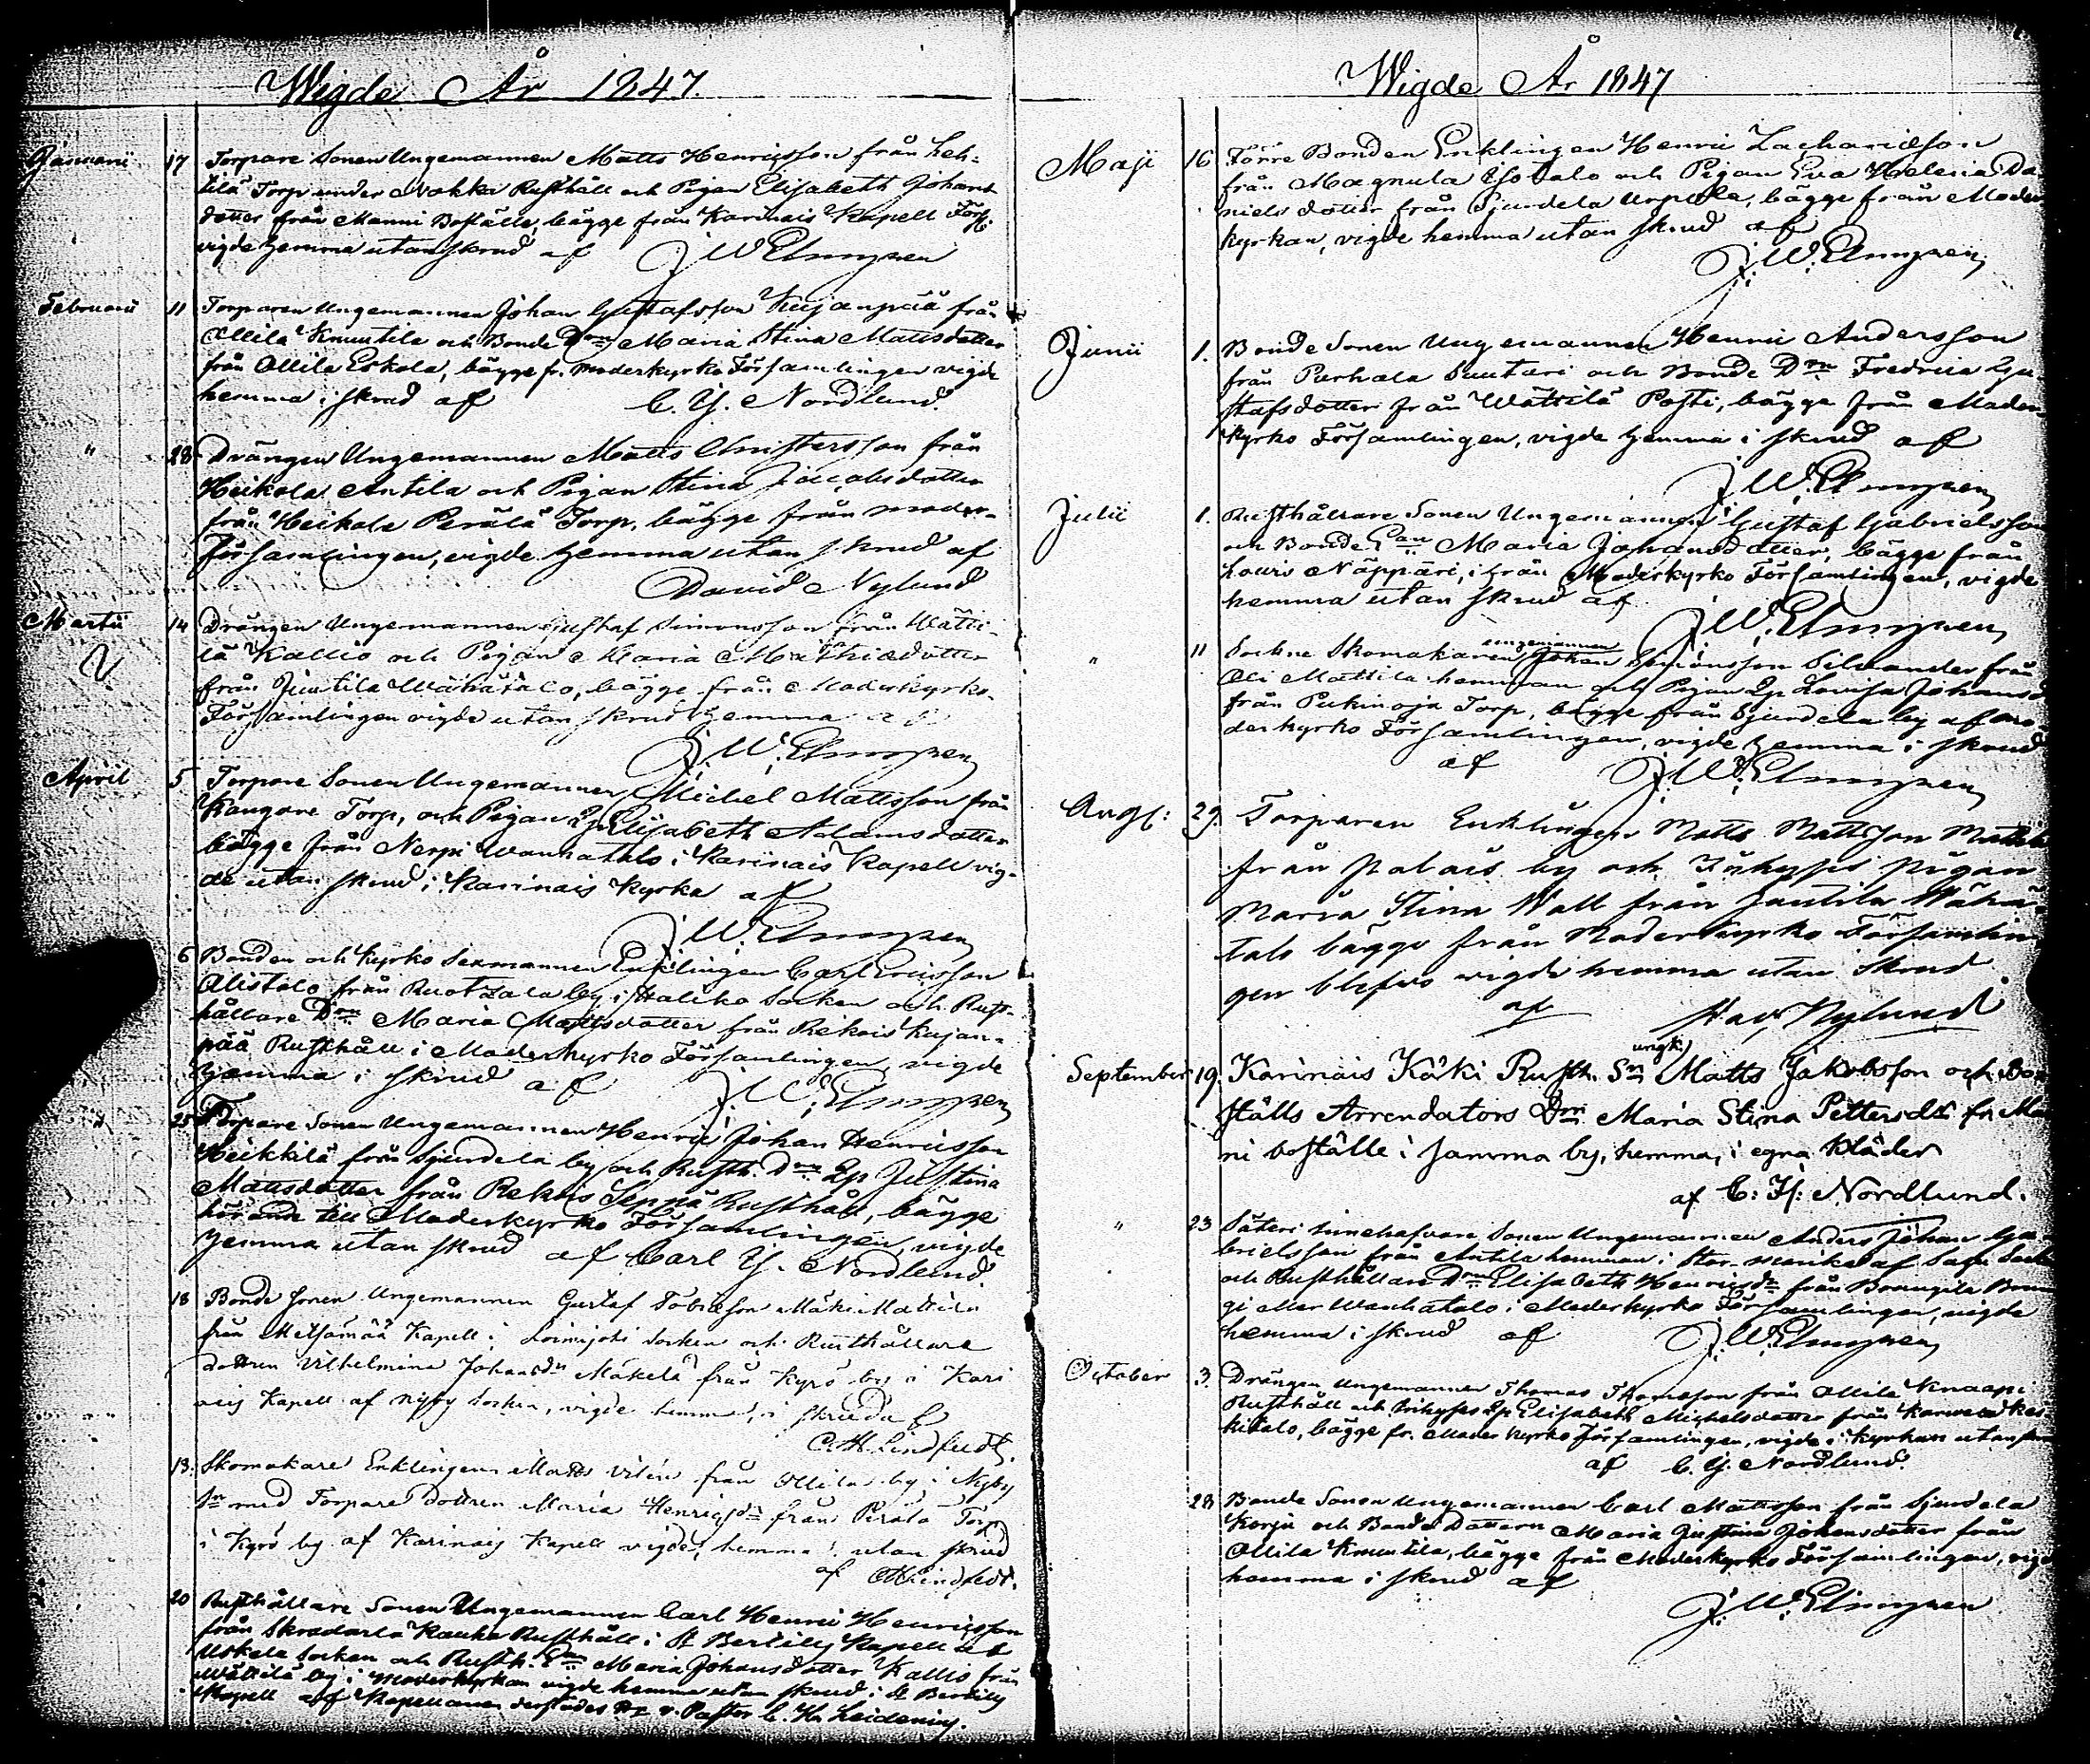 Wigde År 1847.
Januarii 17 Torpare Sonen Ungemannen Matts Henricsson från Leh-
tilä Torp under Nokka Rusthåll och Pigan Elisabeth Johans
dotter från Manni Boställe, bägge från Karinais Kapell Förs.
vigde hemma utan skrud af J W Elmgren
Februarii 11 Torparen Ungemannen Johan Gustafsson Kujanpää från
Ollila Knuutila och Bonde Dn Maria Stina Mattsdotter
från Ollila Eskola, bägge fr. moderkyrko Församlingen vigde
hemma i skrud af C. H. Nordlund.
" 28 Drängen Ungemannen Matts Christersson från
Heikola Antila och Pigan Stina Jacobsdotter
från Heikola Perälä Torp, bägge från moder-
församlingen, vigde hemma utan skrud af
David Nylund
Martii 14 Drängen Ungemannen Gustaf Simonsson från Wätti-
lä Kallio och Pigan Maria Mathiedotter
från Juntila Wähätalo, bägge från Moderkyrko-
Församlingen vigde utan skrud hemma af
J. W. Elmgren
April 5 Torpare Sonen Ungemannen Michel Mattsson från
Kangare Torp, och Pigan Elisabeth Adamsdotter
bägge från Nerpi Wanhatalo i Karinais Kapell vig-
de utan skrud i Karinais Kyrka af
J. W. Elmgren
6 Bonden och Kyrko Sexmannen Enklingen Carl Ericsson
Alistalo från by i Haliko Socken och Rust-
hållare Dn Maria Mattsdotter från Rekois Kujan-
pää Rusthåll i Moderkyrko Församlingen, vigde
hemma i skrud af J. W. Elmgren
25 Torpare Sonen Ungemannen Henric Johan Henricsson
Heikkilä från Sjundela by och Rusth. Dn Justina
Mattsdotter från Rekois Seppä Rusthåll, bägge
hörande till Moderkyrko Församlingen, vigde
hemma utan skrud af Carl H. Nordlund.
18 Bonde sonen Ungemannen Gustaf Tobiasson Mäki Mattila
från Metsämaa Kapell i Loimijoki socken och Rusthållare
dottren Vilhelmina Johansdr Mäkelä från Kyrö by i Kari
nais Kapell af Nyby socken, vigde hemma, i skrud af
C. H. Lindstedt.
13. Skomakare Enklingen Matts från Ollila by i Nyby
Sn med Torpare dottren Maria Henricsdr från Perälä Torp
i Kyrö by af Karinais Kapell vigde, hemma utan skrud
af CH Lindstedt.
20 Rusthållare Sonen Ungemannen Carl Henric Henricsson
från Skradarla Kauko Rusthåll i St Bertills Kapell af
Uskela Socken och Rusth. Dn Maria Johansdotter Kallio från
Wättilä by i Moderkyrkan vigde hemma utan skrud i St Bertills
Kapell af Kapellanen derstädes v. Pastor C. H.
Wigde År 1847
Maji 16 Förre Bonden Enklingen Henric Zachariæson
från Magnula Isotalo och Pigan Eva Helena Da
niels dotter från Sjundela Urpola, bägge från Moder
kyrkan, vigde hemma utan skrud af
J. W. Elmgren
Junii 1. Bonde Sonen Ungemannen Henric Andersson
från Parhala Suutari och Bonde Dn Fredrica Gu
stafsdotter från Wättilä Posti, bägge från Moder
kyrko Församlingen, vigde hemma i skrud af
J. W. Elmgren
Julii 1. Rusthållare Sonen Ungemannen Gustaf Gabrielsson
och Bonde Maria Johansdotter, bägge från
Louris Näppäri, i från Moderkyrko Församlingen, vigde
hemma utan skrud af
J. W. Elmgren
" 11 Sockne Skomakaren ungemannen Johan Simonsson Silvander från
Oli Mattila hemman och Pigan Lovisa Johansd
från Pukinoja Torp, bägge från Sjundela by af mo
derkyrko Församlingen, vigde hemma i skrud
af J. W. Elmgren
Augs: 29. Torparen Enklingen Matts Mattsson
från Palais by och Inhyses pigan
Maria Stina Wall från Juntila Wähä-
talo bägge från Moderkyrko Församlin
gen blefvo vigde hemma utan skrud
af Dav. Nylund
September 19. Karinais Käki Rusth. Sn ungk. Matts Jakobsson och Bo
ställs Arrendators Drn Maria Stina Pettersdtr fr. Man
ni boställe i samma by, hemma, i egna kläder
af C: H: Nordlund.
" 23 Säteri innehafvare Sonen Ungemannen Anders Johan Ga
brielsson från Antila hemman i af Sagu Sock
och Rusthållare Dn Elisabeth Henricsdr från
Wanhatalo i Moderkyrko Församlingen, vigde
hemma i skrud af J. W. Elmgren
October 3. Drängen Ungemannen Thomas Thomsson från Ollila Knaapi
Rusthåll och Inhyses Elisabeth Michelsdotter från Karvela Kes-
kitalo, bägge fr. Moder kyrko Församlingen, vigde i Kyrkan utan
af C. H. Nordlund.
28 Bonde Sonen Ungemannen Carl Mattsson från Sjundela
Korju och Bonde Dottern Maria Justina Johansdotter från
Ollila Knuutila, bägge från Moderkyrko Församlingen, vigde
hemma i skrud af
J. W. Elmgren